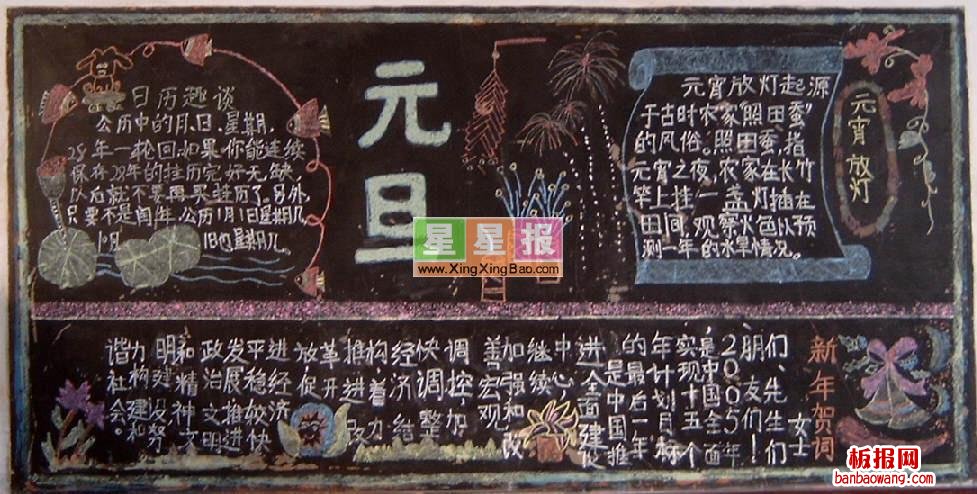 日历趣谈
公历中的月、日、星期,
28年一轮回.如果你能连续
保存28年的挂历完好无缺
以后就不要再买挂历了。另外,
只要不是闰年,公历1月1日是星期几
1日也星期几
元旦
元宵放灯起源
于古时农家照田蚕”
的风俗。照田蚕,指
元宵之夜,农家在长竹
竿上挂一盏灯插在
田间,观察火色以预
测一年的水旱情况。
元宵放灯
星星报
www.XingXingBao.com
新年贺词
女士
们、先生们
朋友们!
2005年
是中国全面
实现十五个
年计划目标
的最后一年
是中国推
进全面建设
中心,
继续
加强和改
善宏观
调控加
快调整
经济结
构,着力
推进改
革开
放,促
进经济
平稳较快
发展,推进
政治文明
和精神文
明建设努
力构建和
谐社会。
板报网
banbaowang.com